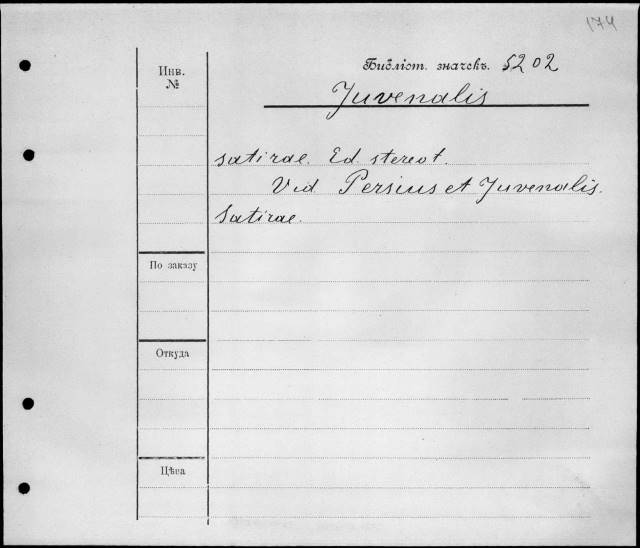 174
Инв. №
Библіот. значекъ. 5202
Juvenalis
satirae. Ed. stereot.
Vid Persius et Juvenalis.
Satirae.
По заказу
Откуда
Цѣна